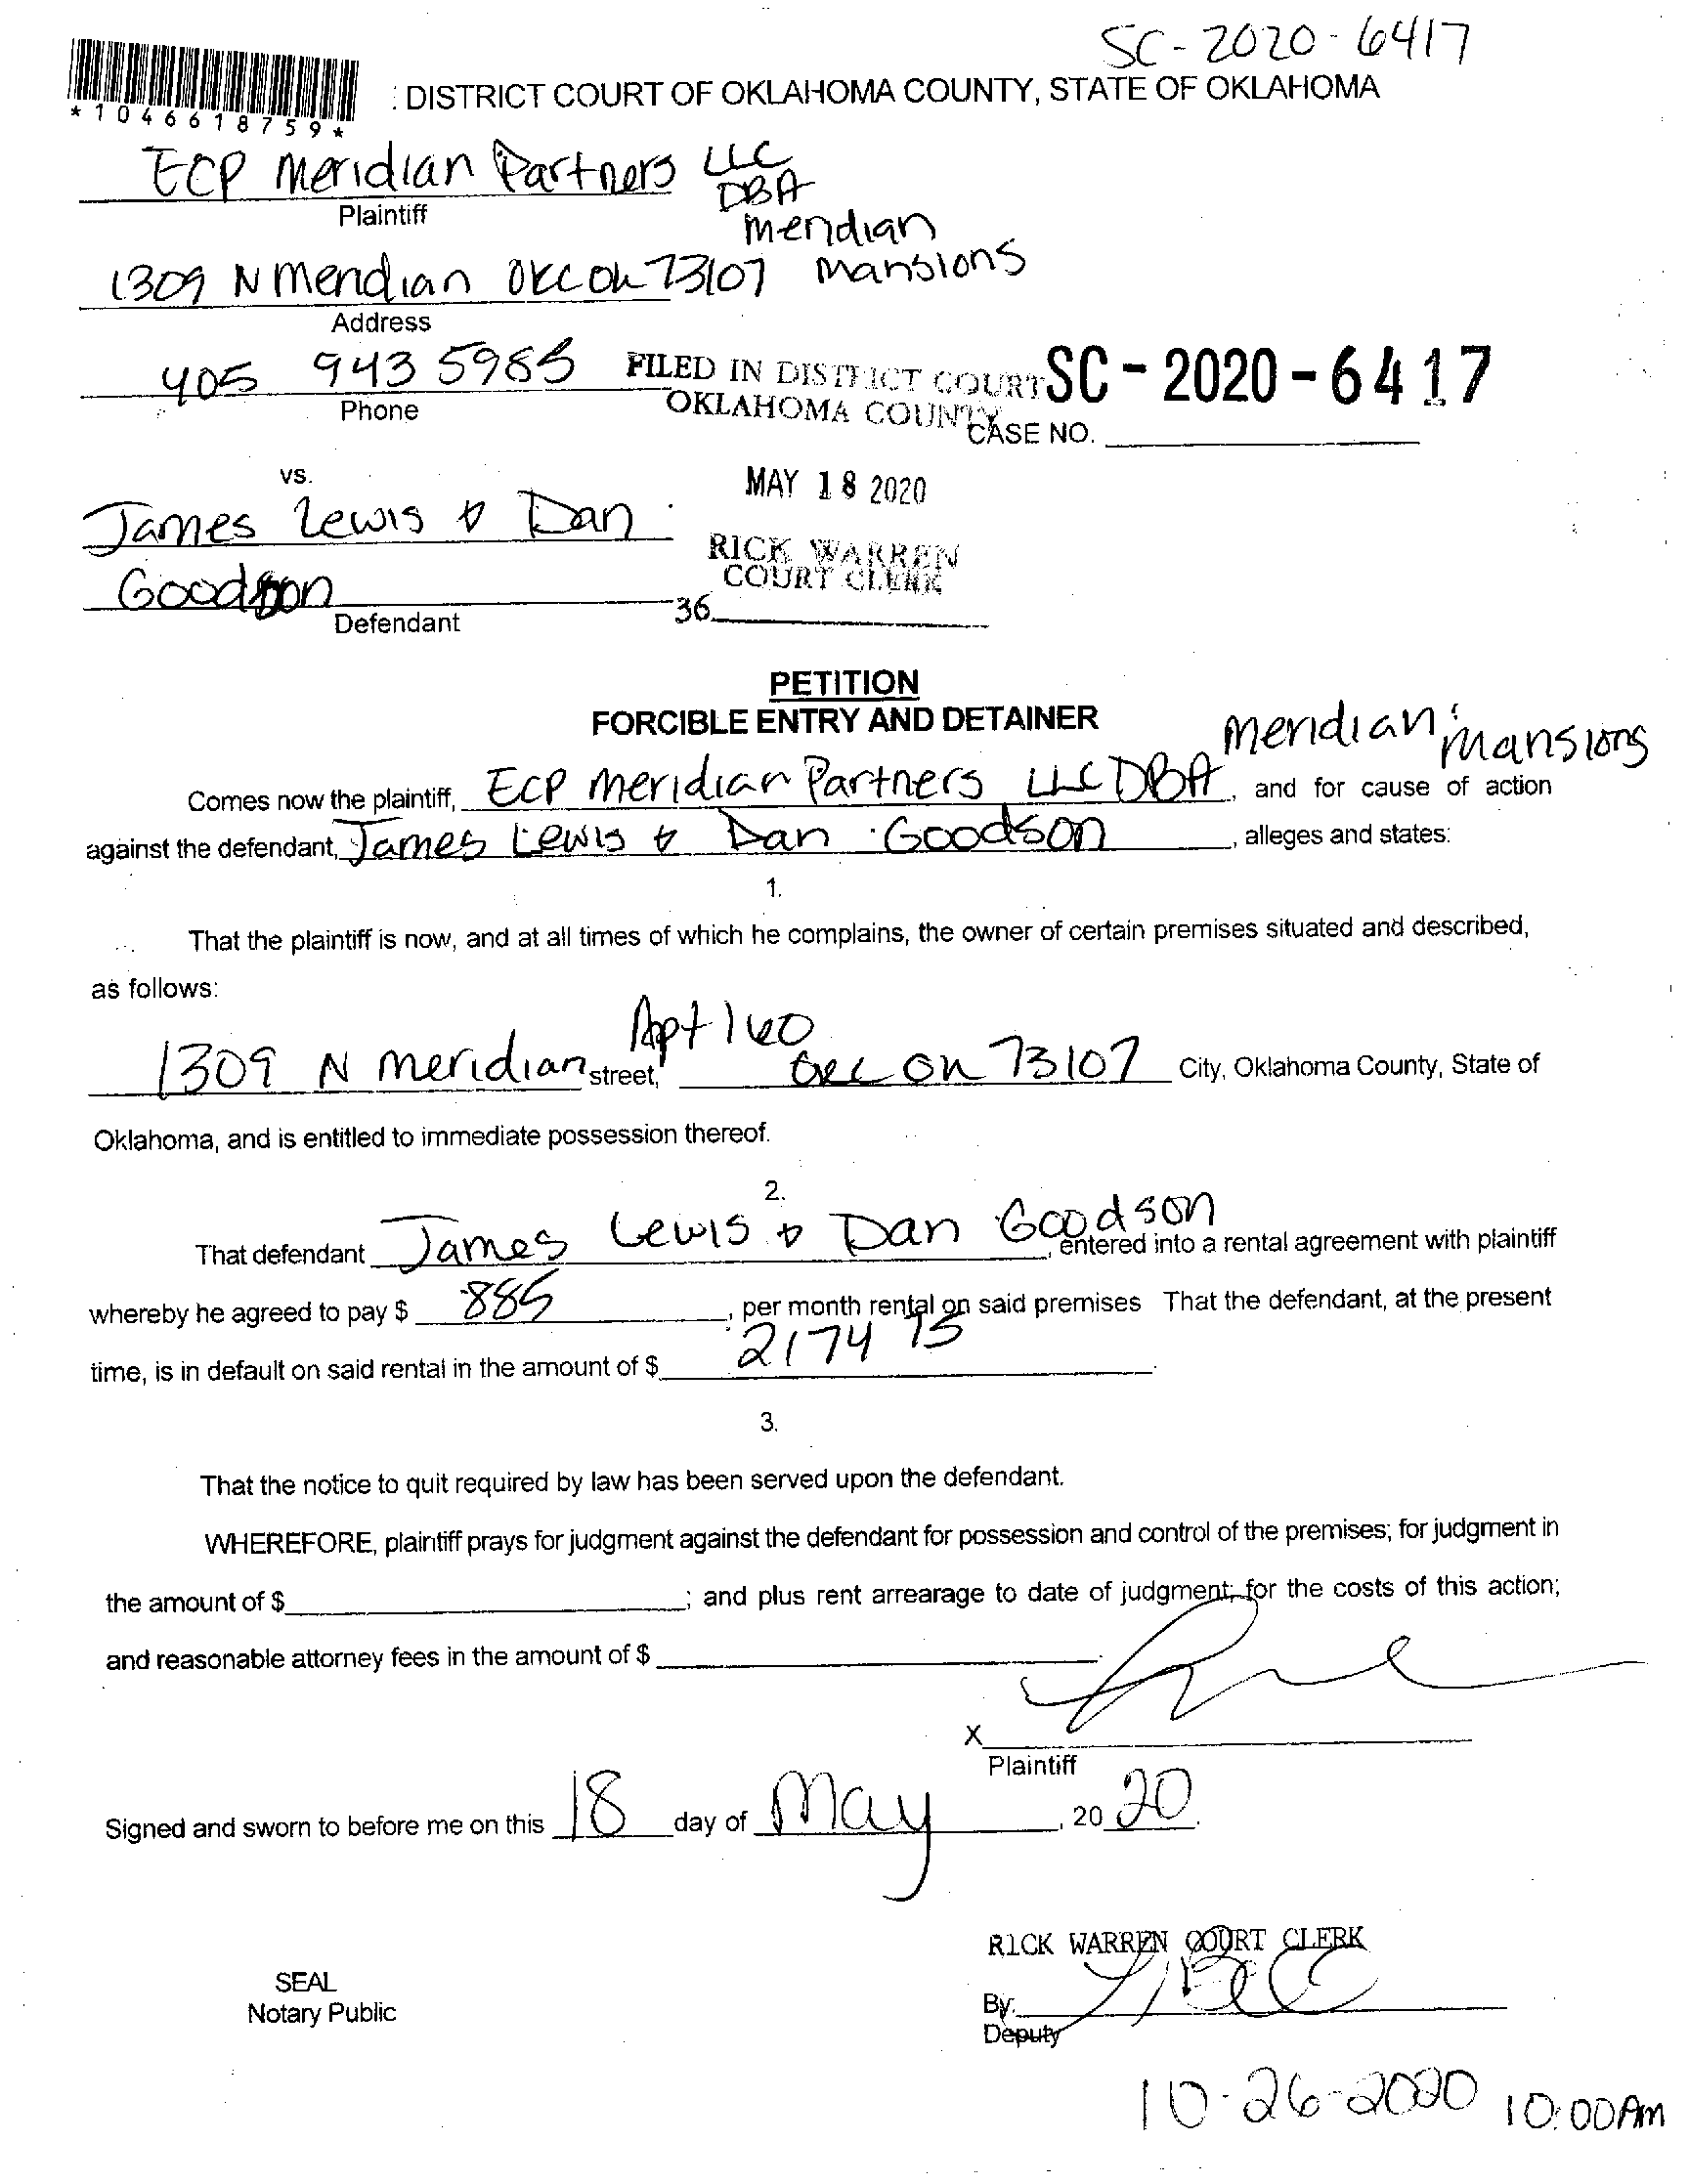 SC-2020-6417
*1046618759*
: DISTRICT COURT OF OKLAHOMA COUNTY, STATE OF OKLAHOMA
ECP Meridian Partners LLC
DBA
Plaintiff
Meridian
Mansions
1309 N Meridian OKC OK 73107
Address
405 943 5985
Phone
FILED IN DISTRICT COURT
OKLAHOMA COUNTY
SC-2020-6417
CASE NO.
vs.
MAY 18 2020
James Lewis & Dan
Goodson
RICK WARREN
COURT CLERK
36
Defendant
PETITION
FORCIBLE ENTRY AND DETAINER
Meridian Mansions
Comes now the plaintiff, ECP Meridian Partners LLC DBA, and for cause of action
against the defendant, James Lewis & Dan Goodson, alleges and states:
1.
That the plaintiff is now, and at all times of which he complains, the owner of certain premises situated and described,
as follows:
Apt 160
1309 N Meridian street, OKC OK 73107 City, Oklahoma County, State of
Oklahoma, and is entitled to immediate possession thereof.
2.
That defendant James Lewis & Dan Goodson, entered into a rental agreement with plaintiff
whereby he agreed to pay $ 885, per month rental on said premises That the defendant, at the present
time, is in default on said rental in the amount of $ 2174 75.
3.
That the notice to quit required by law has been served upon the defendant.
WHEREFORE, plaintiff prays for judgment against the defendant for possession and control of the premises; for judgment in
the amount of $ ; and plus rent arrearage to date of judgment; for the costs of this action;
and reasonable attorney fees in the amount of $
X
Plaintiff
Signed and sworn to before me on this 18 day of May, 20 20.
RICK WARREN COURT CLERK
SEAL
Notary Public
By:
Deputy
10-26-2020 10:00AM